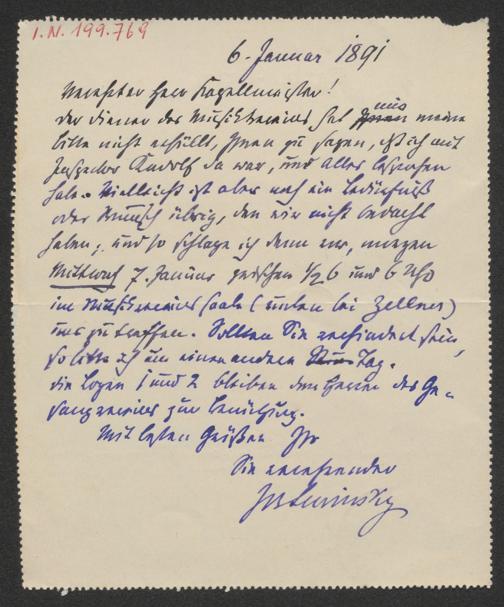 I.N. 199.769
6. Januar 1891
Verehrter Herr Kapellmeister!
Der Diener des Musikvereines hat mir meine
Bitte nicht erfüllt, Ihnen zu sagen, daß ich mit
Inspector Rudolf da war, und alles besprochen
habe. Vielleicht ist aber noch ein Bedürfniß
oder Wunsch übrig, den wir nicht bedacht
haben; und so schlage ich denn vor, morgen
Mittwoch 7. Januar zwischen 1/2 6 und 6 Uhr
im Musikvereinssaale (unten bei Zellner)
uns zu treffen. Sollten Sie verhindert sein,
so bitte ich um einen andern Tag.
Die Logen 1 und 2 bleiben den Herren des Ge-
sangvereines zur Benützung.
Mit besten Grüßen Ihr
Sie verehrender
Jos Lewinsky